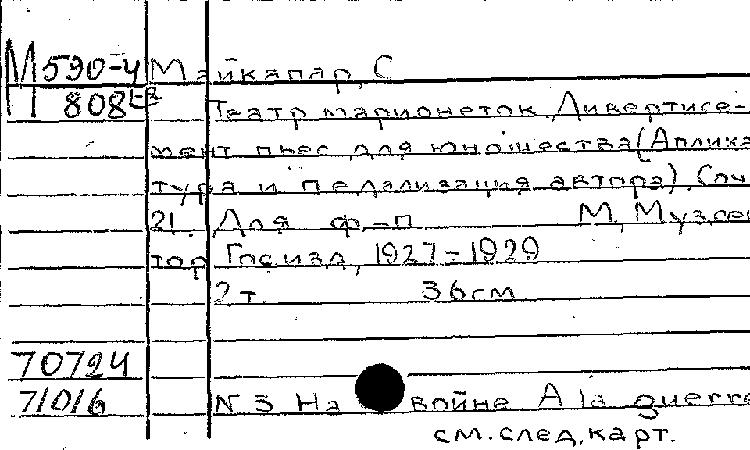 М590-4 Майкапар, С
М 808
Театр марионеток. Дивертисе-
мент пьес для юношества (Апплика
тура и педализация автора). Соч
21. Для ф.-п М, Музсек
тор Госизд, 1927-1929
2 т. 36 см
70724
71016 N 3 На войне A la guerre
см. след. карт.